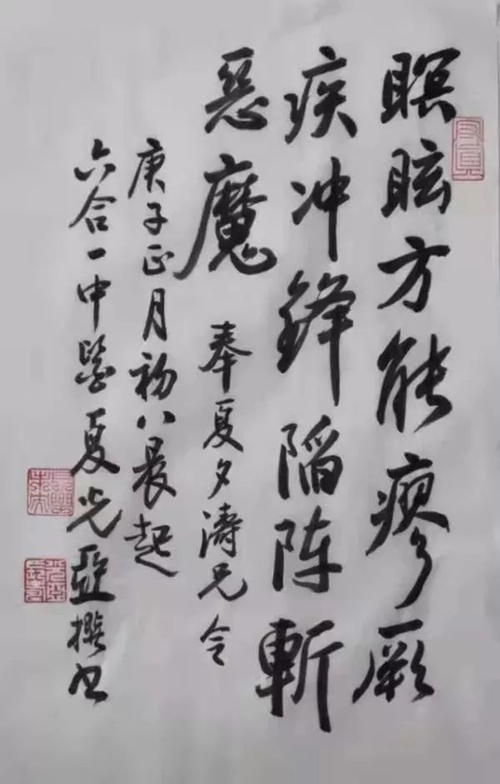 瞑眩方能瘳厥
疾冲鋒陷陣斬
惡魔
奉夏夕涛兄令
庚子正月初八晨起
六合一中学夏光亞撰书